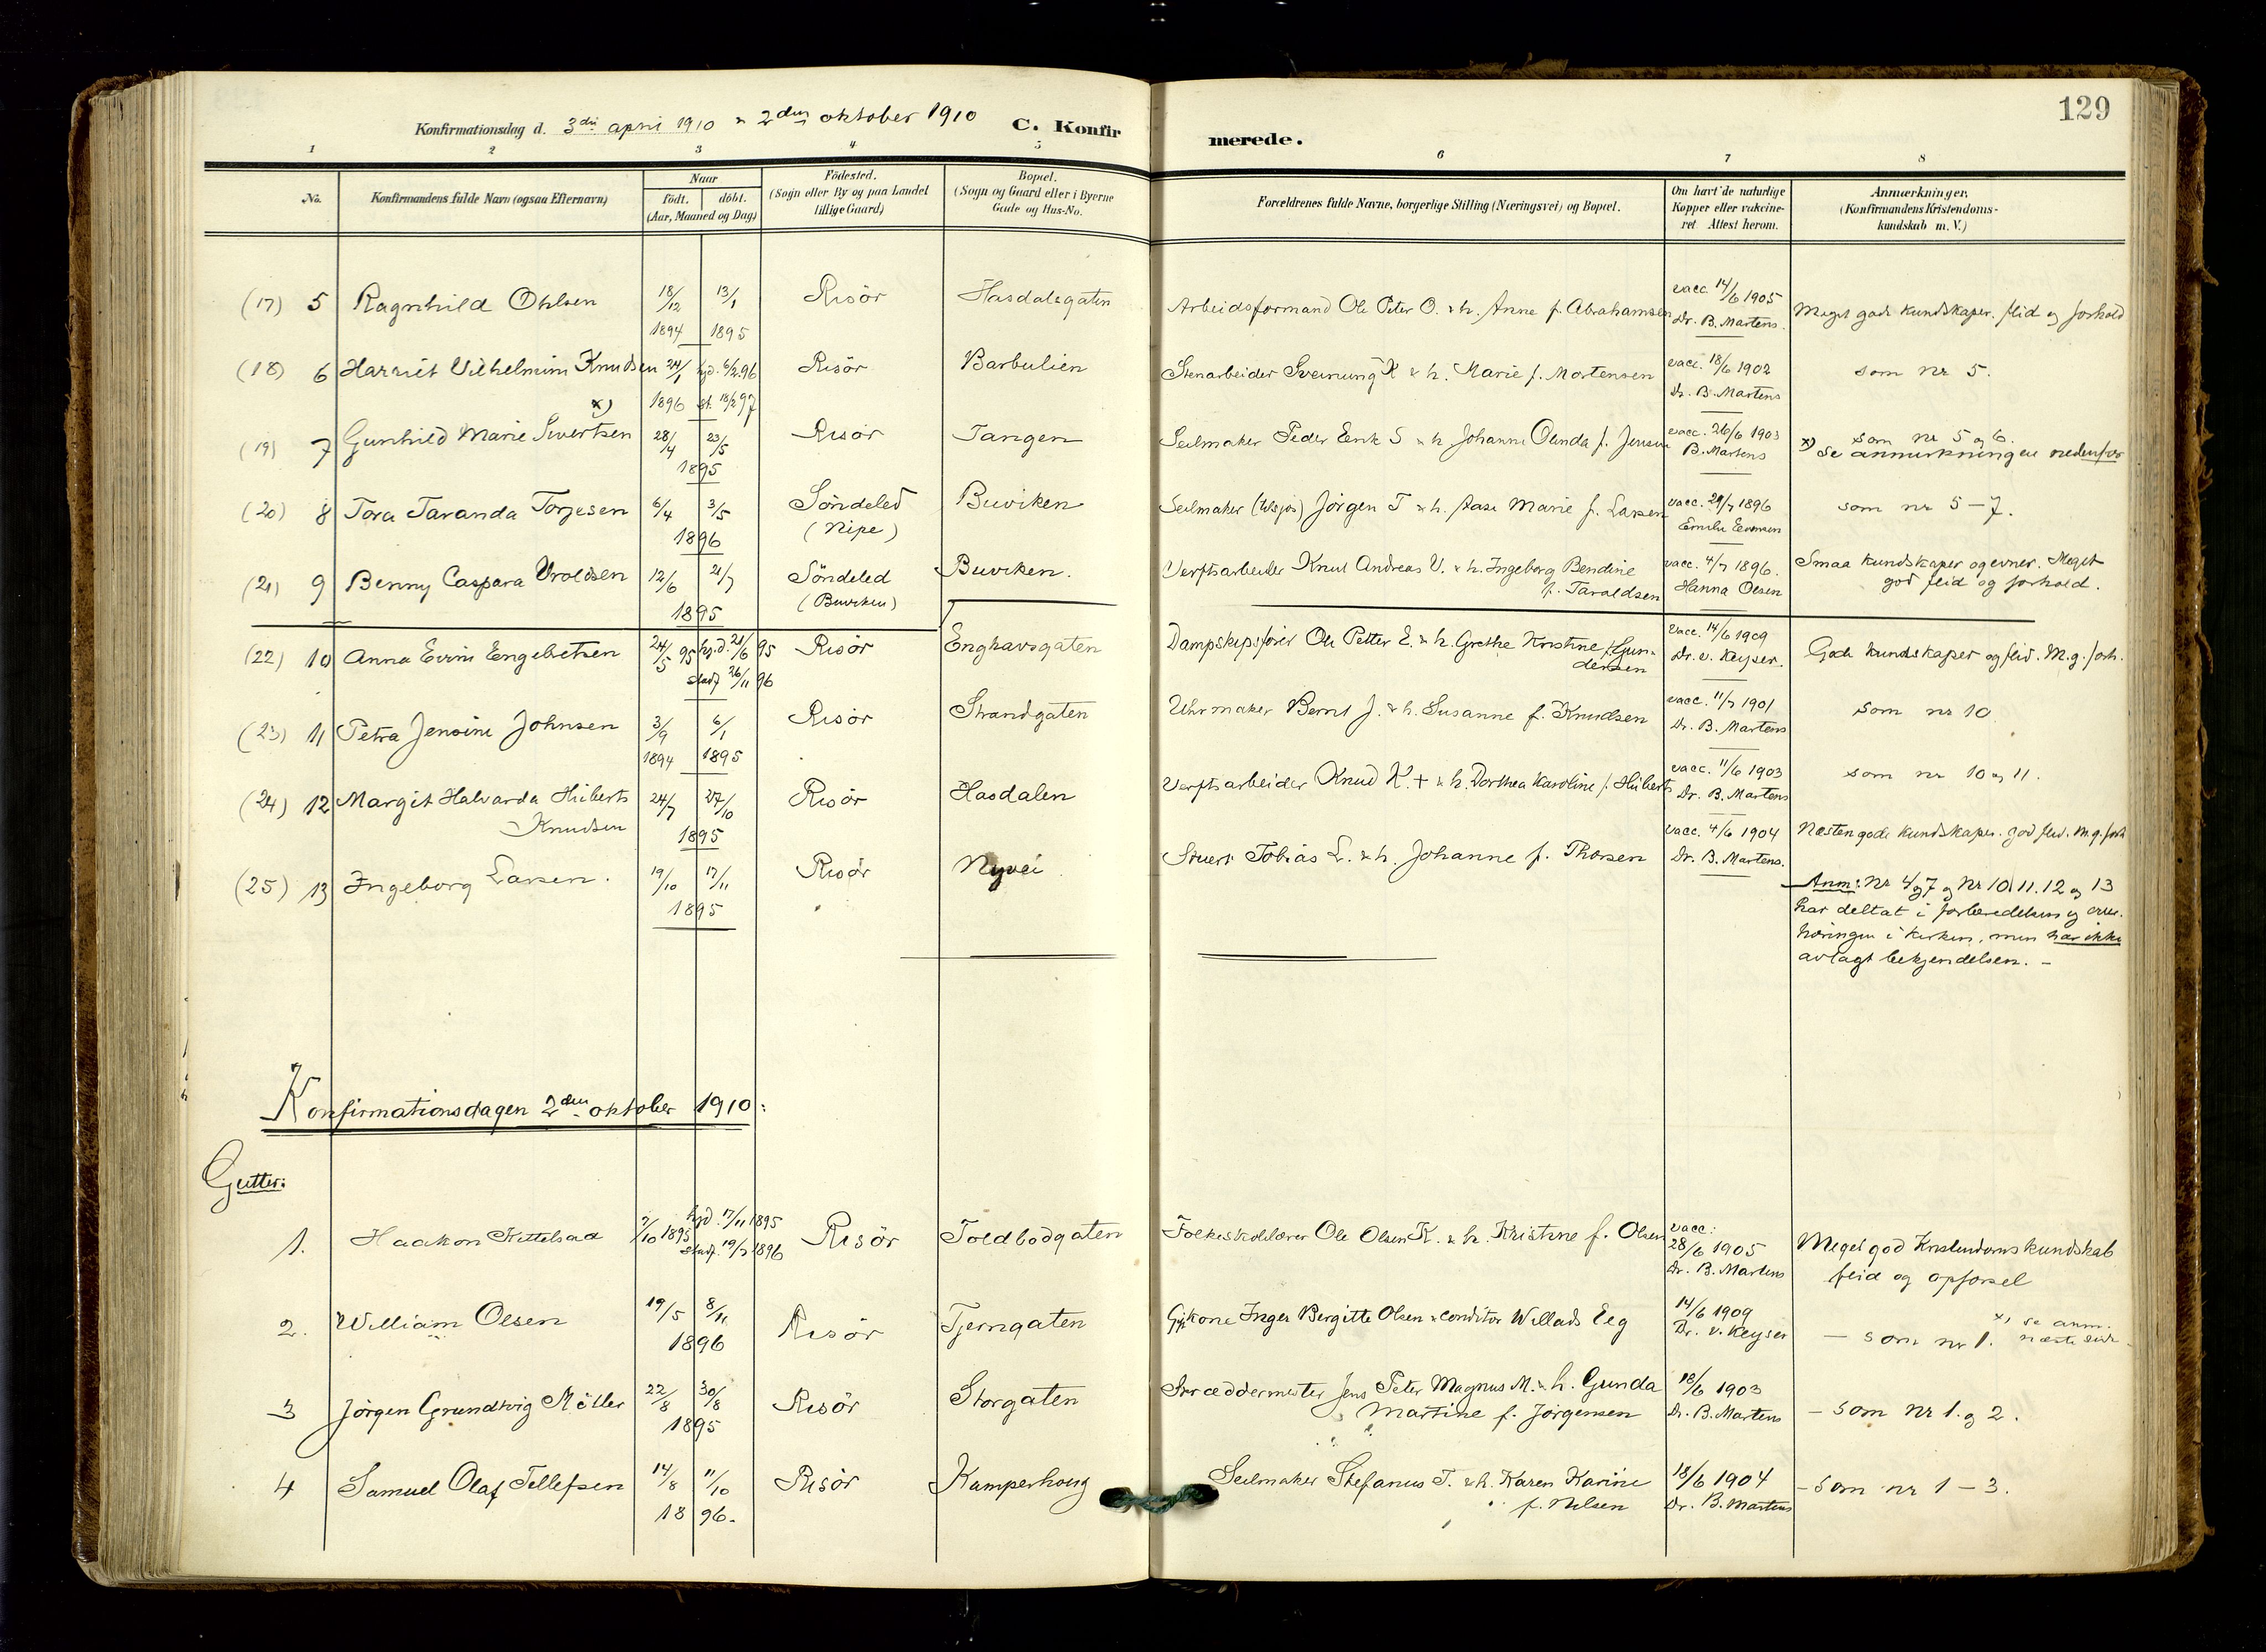 129
Konfirmationsdag d. 3die april 1910 & 2den oktober 1910 C. Konfirmerede.
1 2 3 4 5 6 7 8
No.
Konfirmandens fulde Navn (ogsaa Efternavn)
Naar
födt. döbt.
(Aar, Maaned og Dag)
Födested.
(Sogn eller By og paa Landet
tillige Gaard)
Bopæl.
(Sogn og Gaard eller i Byerne
Gade og Hus-No.
Forældrenes fulde Navne, borgerlige Stilling (Næringsvei) og Bopæl.
Om havt de naturlige
Kopper eller vakcine-
ret Attest herom.
Anmærkninger.
(Konfirmandens Kristendoms-
kundskab m. V.)
(17) 5 Ragnhild Ohlsen 18/12 1894 13/1 1895 Risör Hasdalsgaten Arbeidsformand Ole Peter O. & h. Anne f. Abrahamsen vacc. 14/6 1905 Dr. B. Martens. Meget gode kundskaper, flid og forhold
(18) 6 Harriet Vilhelmine Knudsen 24/1 1896 hjd. 6/2 96 st. 18/2 97 Risör Barbulien Stenarbeider Sveinung K & h. Marie f. Mortensen vacc. 18/6 1902 Dr. B. Martens som nr 5.
(19) 7 Gunhild Marie Sivertsen x) 28/4 23/5 1895 Risör Tangen Seilmaker Peder Enk S & h Johanne f. Jensen vacc. 26/6 1903 B. Martens som nr 5 og 6.
x) se anmerkningen nedenfor
(20) 8 Tora Taranda Torjesen 6/4 3/5 1896 Söndeled (Nipe) Buviken Seilmaker Jörgen T & h. Aase Marie f. Larsen vacc. 29/7 1896 som nr 5 – 7.
(21) 9 Benny Caspara Vroldsen 12/6 21/7 1895 Söndeled (Buviken) Buviken. Verftsarbeider Knut Andreas V. & h. Ingeborg Bendine
f. Taraldsen vacc. 4/7 1896. Hanna Olsen Smaa kundskaper og evner. Meget
god flid og forhold.
(22) 10 Anna Engebretsen 24/5 95 hjd. 21/6 95 stadf 26/11 96 Risör Enghavsgaten Dampskipsförer Ole Petter E. & h. Grethe Kristine f. Gun-
dersen vacc. 14/6 1909 Dr. v. Keyser. Gode kundskaper og flid. M. g. forh.
(23) 11 Petra Jensine Johnsen 3/9 1894 6/1 1895 Risör Strandgaten Uhrmaker Bernt J. & h. Susanne f. Knudsen vacc. 11/7 1901 Dr. B. Martens som nr 10
(24) 12 Margit Halvarda Huberts
Knudsen 24/7 27/10 1895 Risör Hasdalen Verftsarbeider Knud K. + & h. Dorthea Karoline f. Huberts vacc. 11/6 1903 Dr. B. Martens som nr 10 og 11.
(25) 13 Ingeborg Larsen. 19/10 17/11 1895 Risör Nyvei Stuert Tobias L. & h. Johanne f. Thorsen vacc. 4/6 1904 Dr. B. Martens. Næsten gode kundskaper. god flid. M. g. forh
Anm: Nr 4 og 7 og Nr 10. 11. 12 og 13
har deltat i forberedelsen og over-
høringen i kirken, men har ikke
avlagt bekjendelsen. –
Konfirmationsdagen 2den oktober 1910:
Gutter:
1. Haakon Kittelsaa /10 1895 hjd. 17/11 1895 stadf. 19/7 1896 Risör Toldbodgaten Folkeskolelærer Ole Olsen K. & h. Kristine f. Olsen vacc: 28/6 1905 Dr. B. Martens Meget god Kristendomskundskab
flid og opførsel
2. William Olsen 19/5 8/11 1896 Risör Tjerngaten Gift kone Inger Bergitte Olsen & conditor Willads Eeg 14/6 1909 Dr. v. Keyser – som nr 1. x) se anm. næste side
3 Jörgen Grundtvig Möller 22/8 30/8 1895 Risör Storgaten Skræddermester Jens Peter Magnus M. & h. Gunda
Martine f. Jörgensen 18/6 1903 Dr. B. Martens – som nr 1. og 2.
4 Samuel Olaf Tellefsen 14/8 11/10 1896. Risör Kamperhoug Seilmaker Stefanus T. & h. Karen Karine
f. Nilsen 18/6 1904 Dr. B. Martens – som nr 1 – 3.